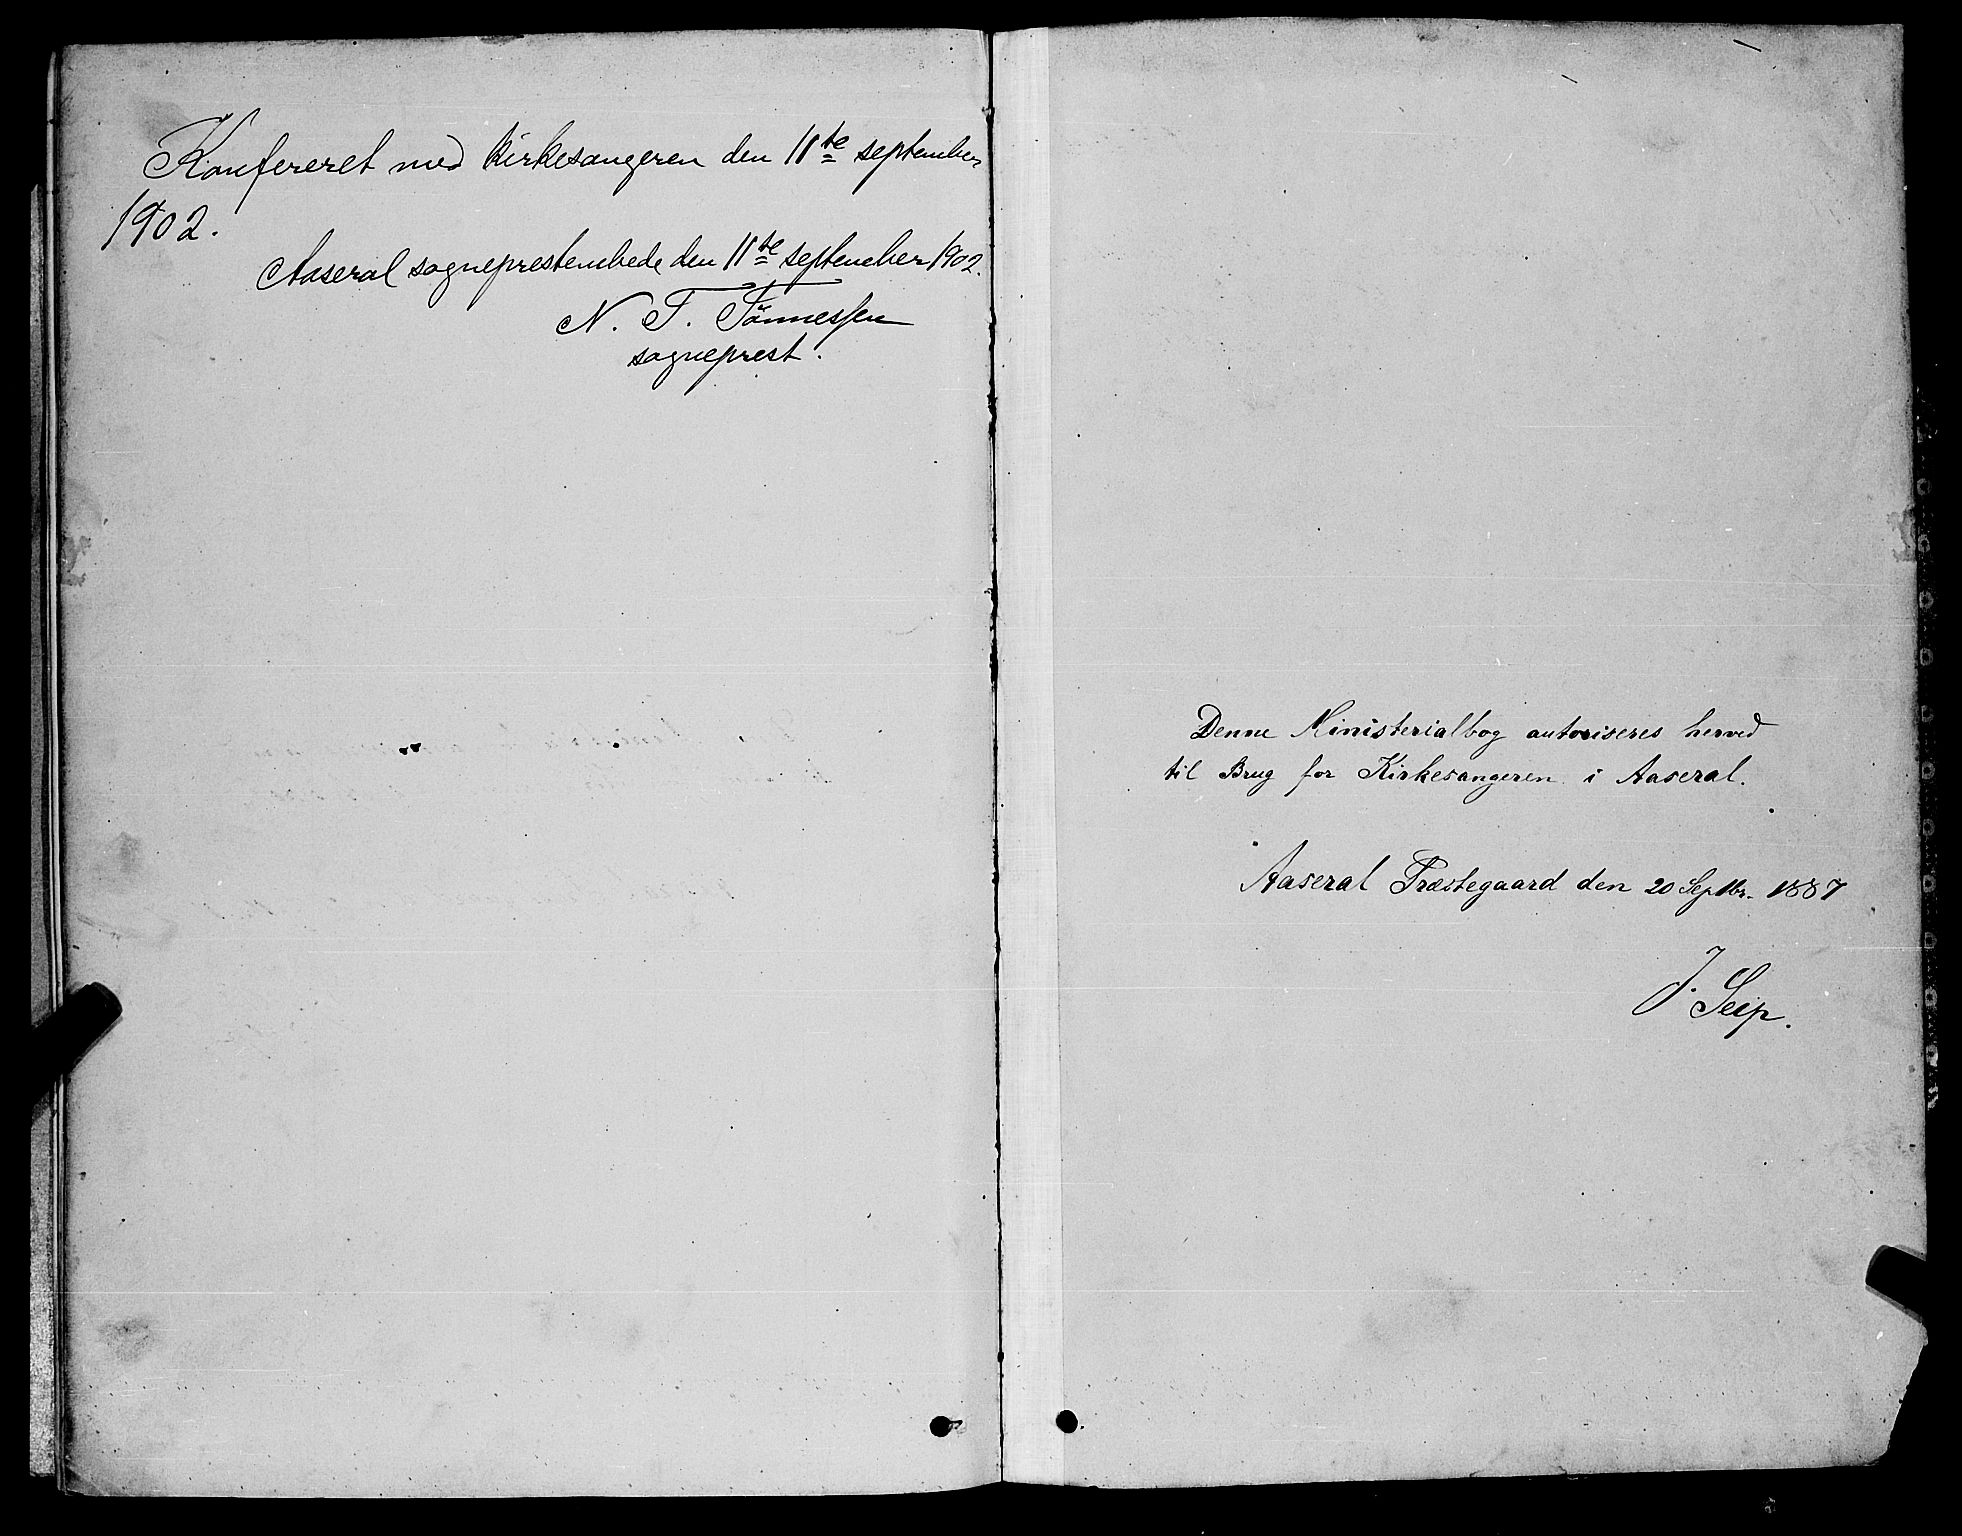 Konfereret med Kirkesangeren den 11te september
1902.
Aaseral sogneprestembede den 11te september 1902.
N. T. Tönnessen
sogneprest.
Denne Ministerialbog autoriseres herved
til Brug for Kirkesangeren i Aaseral.
Aaseral Præstegaard den 20 Septbr. 1887
J. Seip.